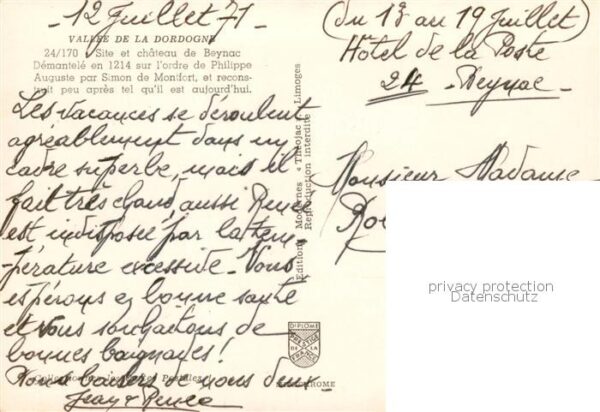 - 12 Juillet 71 -
VALLÉE DE LA DORDOGNE
24/170 - Site et château de Beynac
Démantelé en 1214 sur l'ordre de Philippe
Auguste par Simon de Montfort, et recons-
truit peu après tel qu'il est aujourd'hui.
Les vacances se déroulent
agréablement dans un
cadre superbe, mais il
fait très chaud, aussi Renée
est indisposée par la tem-
-pérature excessive. Vous
espérons en bonne santé
et vous souhaitons de
bonnes baignades!
Bons baisers de nous deux -
Jean & Renée
Editions Modernes « Théojac » Limoges
Reproduction interdite
DIPLOME
PRESTIGE
DE LA
FRANCE
(du 13 au 19 Juillet)
Hôtel de la Poste
24 - Beynac -
Monsieur Madame
privacy protection
Datenschutz